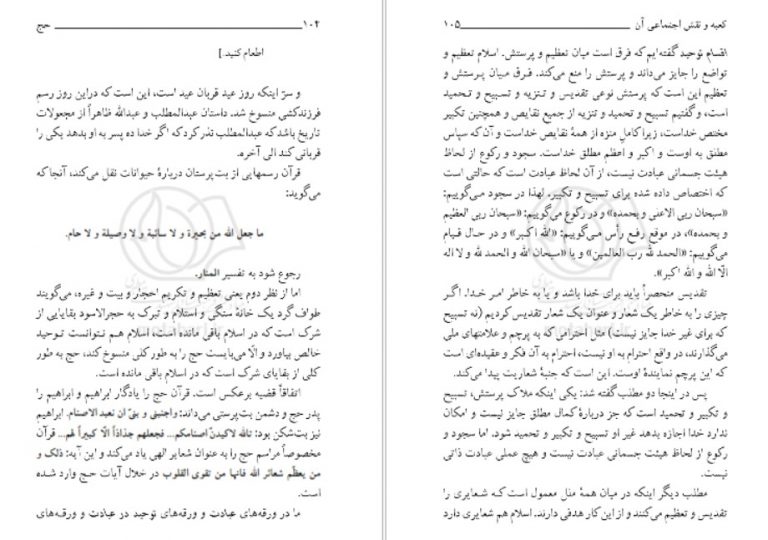 ۱۰۴ حج
اطعام کنید.]
و سرّ اینکه روز عید قربان عید است، این است که در این روز رسم
فرزندکشی منسوخ شد. داستان عبدالمطلب و عبدالله ظاهراً از مجعولات
تاریخ باشد که عبدالمطلب نذر کرد که اگر خدا ده پسر به او بدهد یکی را
قربانی کند الی آخره.
قرآن رسمهایی از بت‌پرستان دربارهٔ حیوانات نقل می‌کند، آنجا که
می‌گوید:
ما جعل الله من بحیرة و لا سائبة و لا وصیلة و لا حام.
رجوع شود به تفسیر المنار.
اما از نظر دوم یعنی تعظیم و تکریم احجار و بیت و غیره، می‌گویند
طواف گرد یک خانهٔ سنگی و استلام و تبرک به حجرالاسود بقایایی از
شرک است که در اسلام باقی مانده است، اسلام هم نتوانست توحید
خالص بیاورد و الّا می‌بایست حج را به طور کلی منسوخ کند، حج به طور
کلی از بقایای شرک است که در اسلام باقی مانده است.
اتفاقاً قضیه برعکس است. قرآن حج را یادگار ابراهیم و ابراهیم را
پدر حج و دشمن بت‌پرستی می‌داند: واجنبنی و بنیّ ان نعبد الاصنام. ابراهیم
نیز بت‌شکن بود: تالله لاکیدنّ اصنامکم... فجعلهم جذاذاً الّا کبیراً لهم... قرآن
مخصوصاً مراسم حج را به عنوان شعایر الهی یاد می‌کند و این آیه: ذلک و
من یعظّم شعائر الله فانها من تقوی القلوب در خلال آیات حج وارد شده
است.
ما در ورقه‌های عبادت و ورقه‌های توحید در عبادت و ورقه‌های
کعبه و نقش اجتماعی آن ۱۰۵
اقسام توحید گفته‌ایم که فرق است میان تعظیم و پرستش. اسلام تعظیم و
تواضع را جایز می‌داند و پرستش را منع می‌کند. فرق میان پرستش و
تعظیم این است که پرستش نوعی تقدیس و تنزیه و تسبیح و تحمید
است، و گفتیم تسبیح و تحمید و تنزیه از جمیع نقایص و همچنین تکبیر
مختص خداست، زیرا کامل منزه از همهٔ نقایص خداست و آن که سپاس
مطلق به اوست و اکبر و اعظم مطلق خداست. سجود و رکوع از لحاظ
هیئت جسمانی عبادت نیست، از آن لحاظ عبادت است که حالتی است
که اختصاص داده شده برای تسبیح و تکبیر، لهذا در سجود می‌گوییم:
«سبحان ربی الاعلی و بحمده» و در رکوع می‌گوییم: «سبحان ربی العظیم
و بحمده»، در موقع رفع رأس می‌گوییم: «الله اکبر» و در حال قیام
می‌گوییم: «الحمد لله رب العالمین» و یا «سبحان الله و الحمد لله و لا اله
الّا الله و الله اکبر».
تقدیس منحصراً باید برای خدا باشد و یا به خاطر امر خدا. اگر
چیزی را به خاطر یک شعار و عنوان یک شعار تقدیس کردیم (نه تسبیح
که برای غیر خدا جایز نیست) مثل احترامی که به پرچم و علامتهای ملی
می‌گذارند، در واقع احترام به او نیست، احترام به آن فکر و عقیده‌ای است
که این پرچم نمایندهٔ اوست. این است که جنبهٔ شعاریت پیدا می‌کند.
پس در اینجا دو مطلب گفته شد: یکی اینکه ملاک پرستش، تسبیح
و تکبیر و تحمید است که جز دربارهٔ کمال مطلق جایز نیست و امکان
ندارد خدا اجازه بدهد غیر او تسبیح و تکبیر و تحمید شود. اما سجود و
رکوع از لحاظ هیئت جسمانی عبادت نیست و هیچ عملی عبادت ذاتی
نیست.
مطلب دیگر اینکه در میان همهٔ ملل معمول است که شعایری را
تقدیس و تعظیم می‌کنند و از این کار هدفی دارند. اسلام هم شعایری دارد